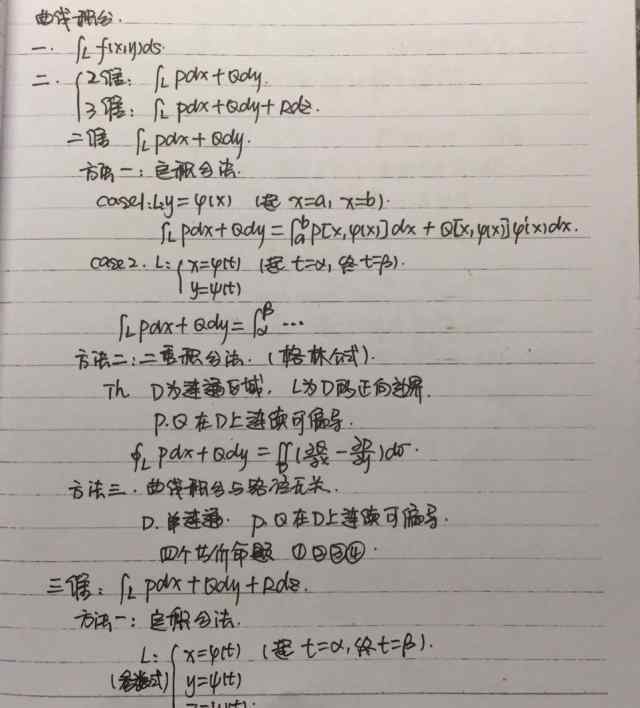 曲线积分.
一. ∫_L f(x,y)ds.
二. { 2维: ∫_L Pdx+Qdy.
3维: ∫_L Pdx+Qdy+Rdz.
二维 ∫_L Pdx+Qdy.
方法一: 定积分法.
case1: L: y=φ(x) (起 x=a, x=b).
∫_L Pdx+Qdy=∫_a^b P[x,φ(x)]dx+Q[x,φ(x)]φ'(x)dx.
case2. L: { x=φ(t) (起 t=α, 终 t=β).
y=ψ(t)
∫_L Pdx+Qdy=∫_α^β ...
方法二: 二重积分法. (格林公式).
Th D为连通区域. L为D的正向边界.
P.Q在D上连续可偏导.
∮_L Pdx+Qdy=∬_D(∂Q/∂x-∂P/∂y)dσ.
方法三. 曲线积分与路径无关.
D.单连通. P.Q在D上连续可偏导.
四个等价命题 ①②③④.
三维: ∫_L Pdx+Qdy+Rdz.
方法一: 定积分法.
L: { x=φ(t) (起 t=α, 终 t=β).
(参数式) y=ψ(t)